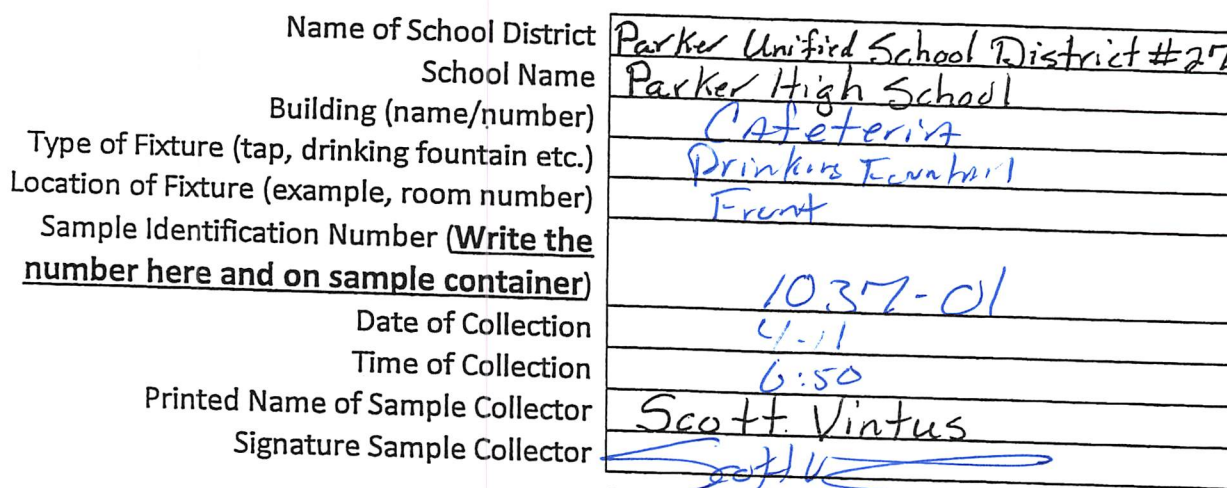 Name of School District Parker Unified School District #27
School Name Parker High School
Building (name/number) CAfeteriA
Type of Fixture (tap, drinking fountain etc.) Drinking Fountain
Location of Fixture (example, room number) Front
Sample Identification Number (Write the
number here and on sample container) 1037-01
Date of Collection 4-11
Time of Collection 6:50
Printed Name of Sample Collector Scott Vintus
Signature Sample Collector Scott V